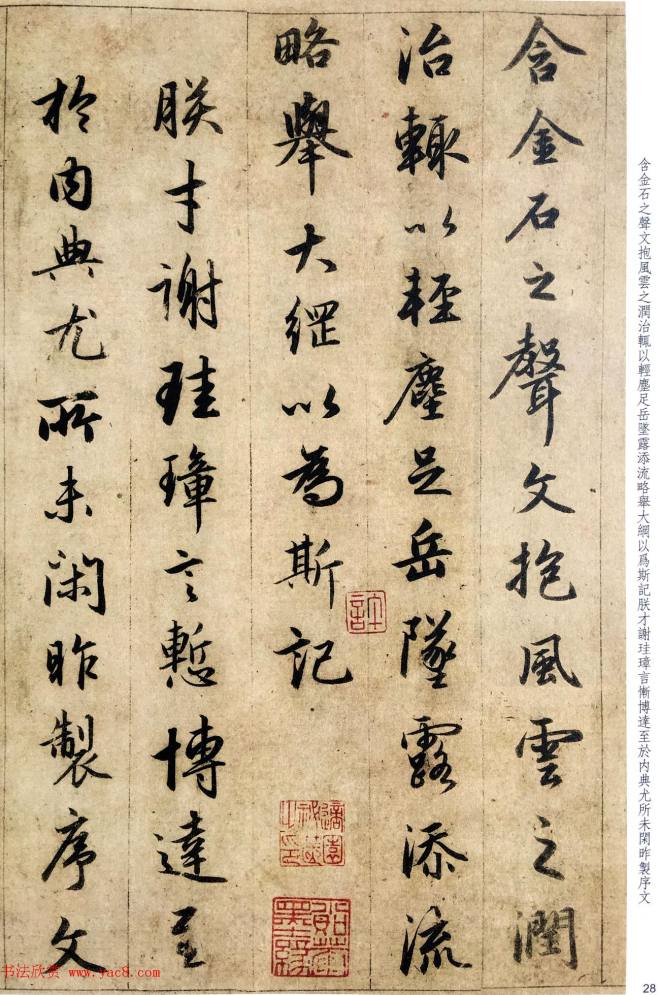 含金石之聲文抱風雲之潤
治輙以輕塵足岳墜露添流
略舉大綱以為斯記
朕才謝珪璋言慙博達至
於內典尤所未閑昨製序文
含金石之聲文抱風雲之潤治輒以輕塵足岳墜露添流略舉大綱以爲斯記朕才謝珪璋言慚博達至於內典尤所未閑昨製序文
书法欣赏 www.yac8.com
28